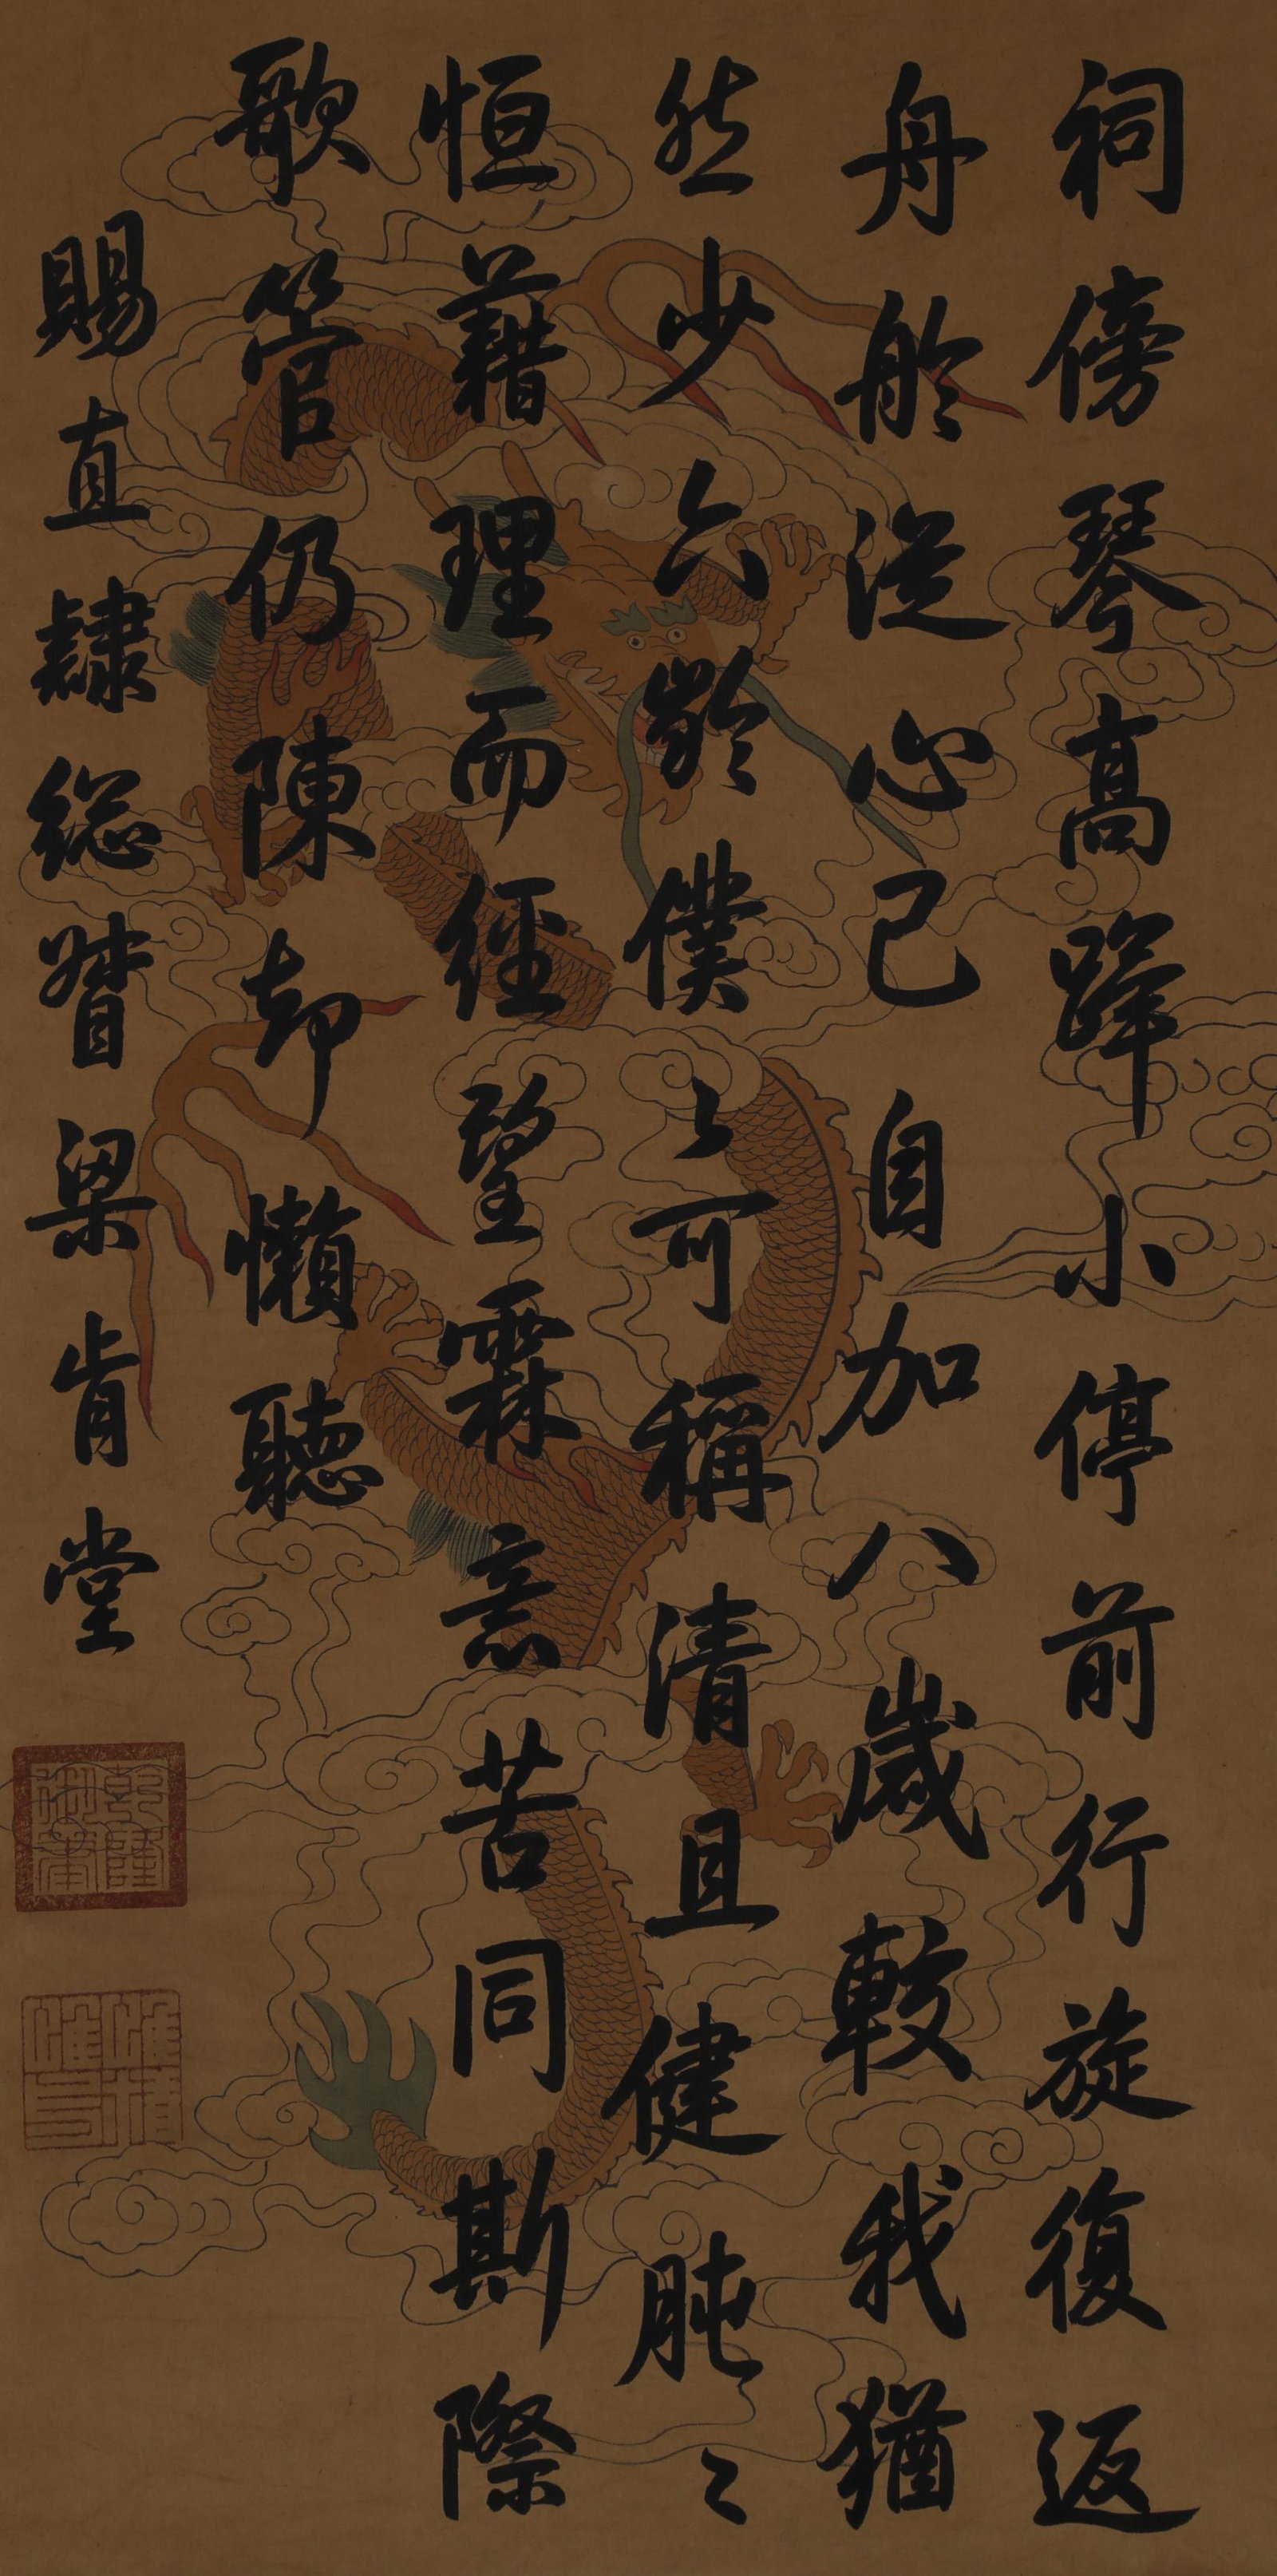 祠傍琴高蹕小停前行旋復返
舟舲從心已自加八歲較我猶
然少六齡僕〻可稱清且健肫〻
恒藉理而經望霖意苦同斯際
歌管仍陳却懶聽
賜直隸総督梁肯堂
乾隆御筆
惟精惟一